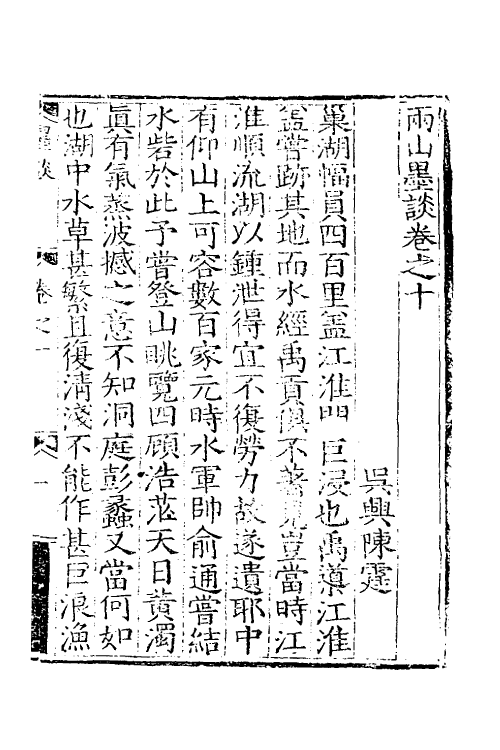 兩山墨談卷之十
吳興陳霆
巢湖幅員四百里盖江淮門巨浸也禹導江淮
盖嘗跡其地而水經禹貢俱不著見豈當時江
淮順流湖以鍾泄得宜不復勞力故遂遺耶中
有仰山上可容數百家元時水軍帥俞通嘗結
水砦於此予嘗登山眺覽四顧浩茫天日黃濁
眞有氣蒸波撼之意不知洞庭彭蠡又當何如
也湖中水草甚繁且復淸淺不能作甚巨浪漁
墨談
卷之十
一